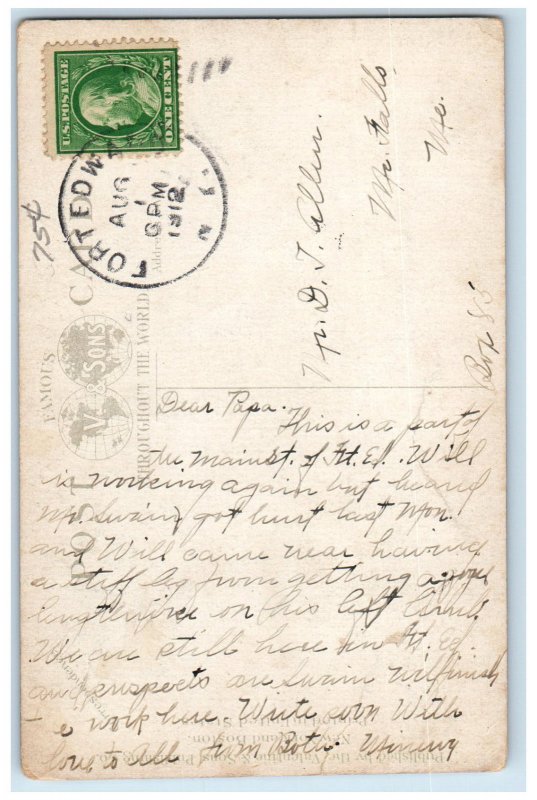 U.S. POSTAGE
ONE CENT
FORT EDW
AUG
1
6 PM
1912
N.Y.
754
FAMOUS
V & SONS
THROUGHOUT THE WORLD
POST CARD
Address
D. T. Allen.
Mc. Falls
Me.
Box 85
Dear Papa.
This is a part of
the main st. of Ft. Ed. Will
is working again but heard
Mr. Swain got hurt last Mon.
and Will came near having
a stiff leg from getting a
on his left
We are still here in Ft. Ed
and suspects Swain will finish
work here. Write soon With
love to all from Both. Minerv
Published by the Valentine & Sons Publishing Co.
New York and Boston.
Printed in